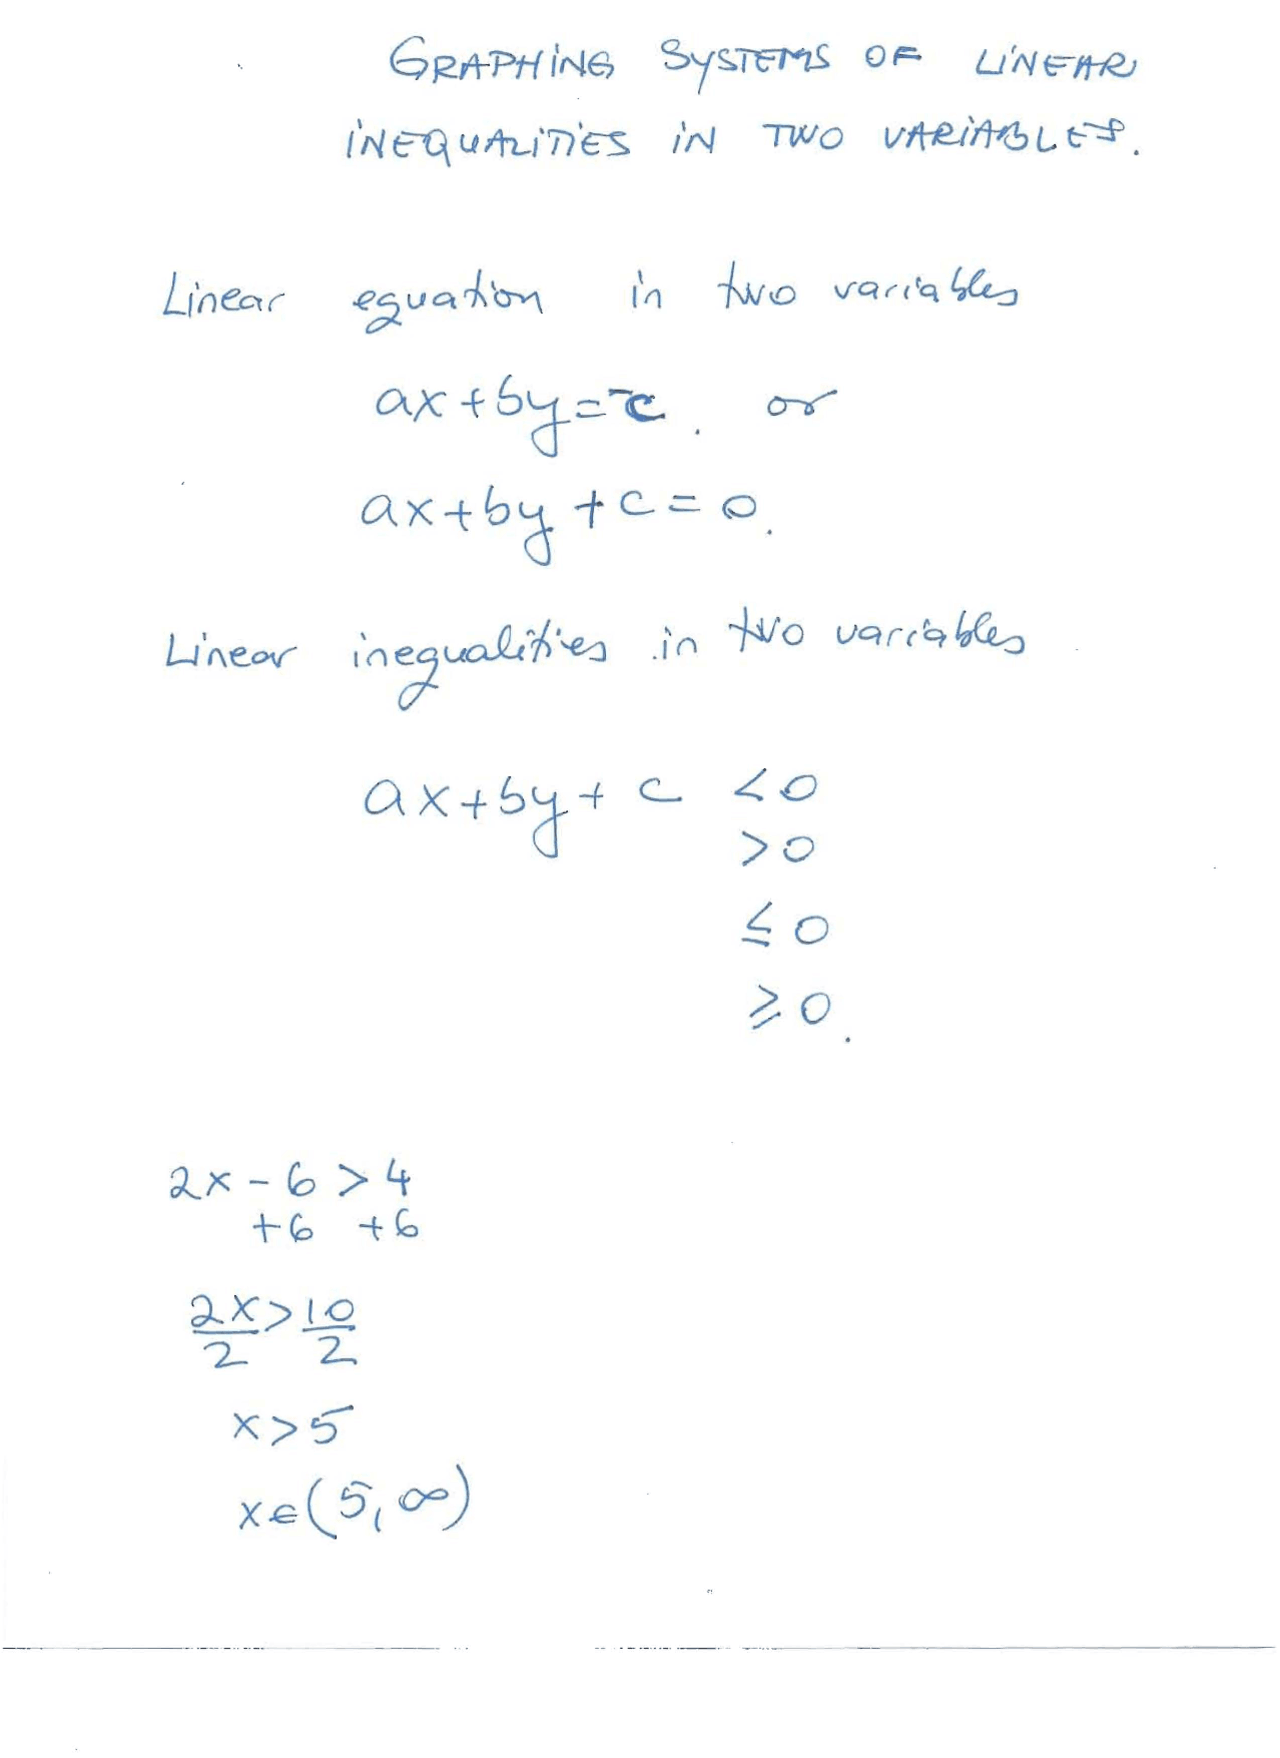 GRAPHING SYSTEMS OF LINEAR
INEQUALITIES IN TWO VARIABLES.
Linear equation in two variables
ax+by=-c. or
ax+by+c=0.
Linear inequalities in two variables
ax+by+c <0
>0
≤0
≥0.
2x-6>4
+6 +6
2x>10
2 2
x>5
x∈(5,∞)